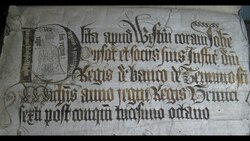 Plita apud Westm coram Johe
Prysot et socijs suis Justic dni
Regis de banco de Termino
Michis anno regni Regis Henrici
sexti post conqm tricesimo octavo